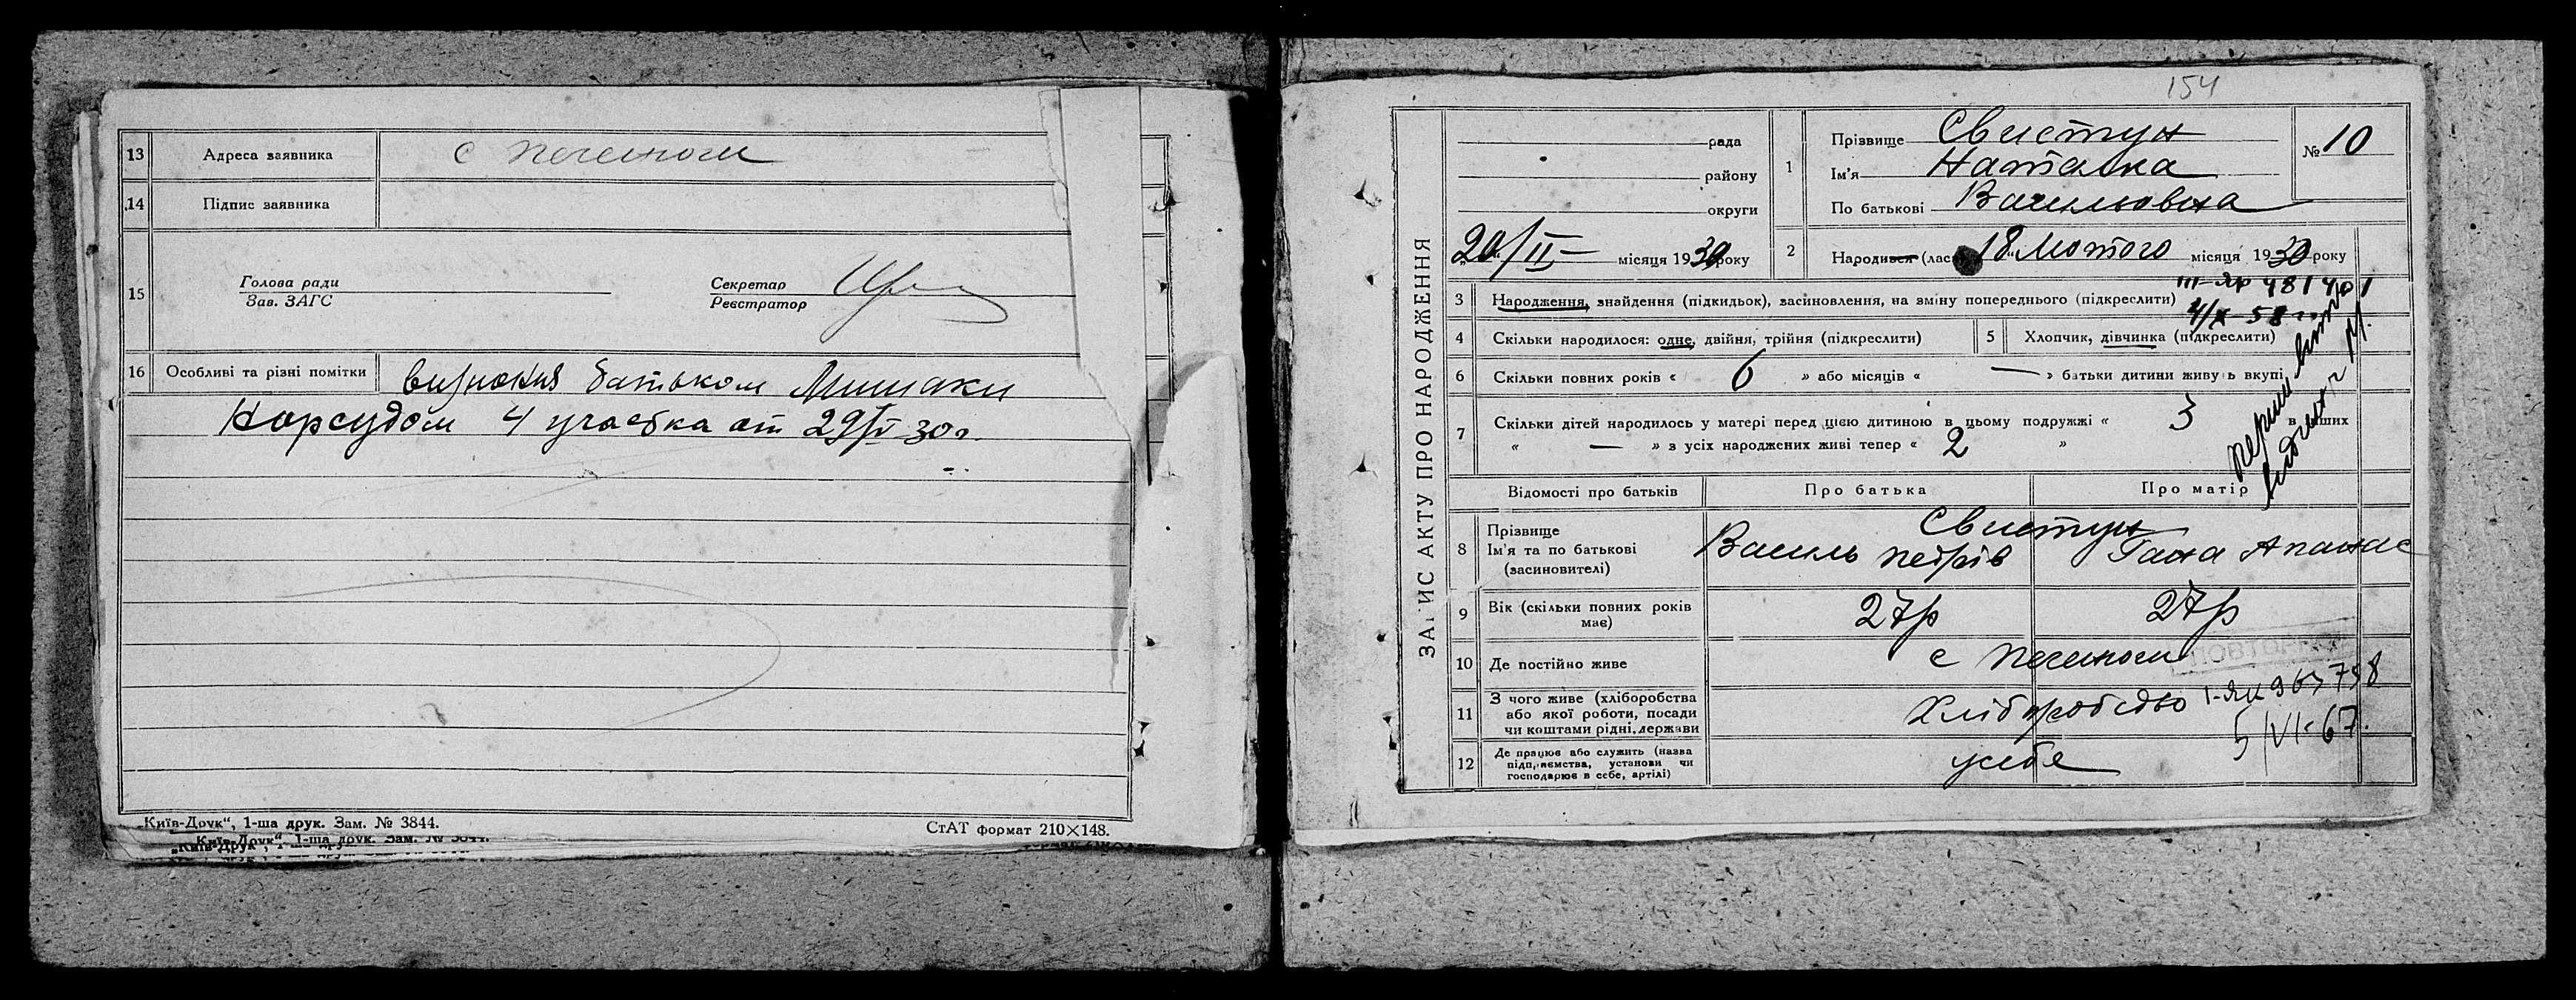 13 Адреса заявника с Печеноги
14 Підпис заявника
15 Голова ради
Зав. ЗАГС
Секретар
Реєстратор
16 Особливі та різні помітки визнаний батьком
Нарсудом 4 участка от 29/IV 30 г.
„Київ-Друк“, 1-ша друк. Зам. № 3844.
СтАТ формат 210×148.
154
ЗАПИС АКТУ ПРО НАРОДЖЕННЯ
рада
району
округи
„20“/II – місяця 1930 року
1 Прізвище Свистун
Ім'я Наталка
По батькові Васильовна
№ 10
2 Народився (лась) „18“ Лютого місяця 1930 року
3 Народження, знайдення (підкидьок), засиновлення, на зміну попереднього (підкреслити)
4 Скільки народилося: одне, двійня, трійня (підкреслити)
5 Хлопчик, дівчинка (підкреслити)
6 Скільки повних років « 6 » або місяців « — » батьки дитини живуть вкупі
7 Скільки дітей народилось у матері перед цією дитиною в цьому подружжі « 3 в інших
« — » з усіх народжених живі тепер « 2 »
Відомості про батьків Про батька Про матір
8 Прізвище
Ім'я та по батькові
(засиновителі)
Свистун
Василь Петрів Гана Апанас
9 Вік (скільки повних років
має)
27р 27р
10 Де постійно живе
ПОВТОРНО
11 З чого живе (хліборобства
або якої роботи, посади
чи коштами рідні, держави
Хліборобство
5/VI-67.
12 Де працює або служить (назва
підприємства, установи чи
господарює в себе, артілі)
усебе